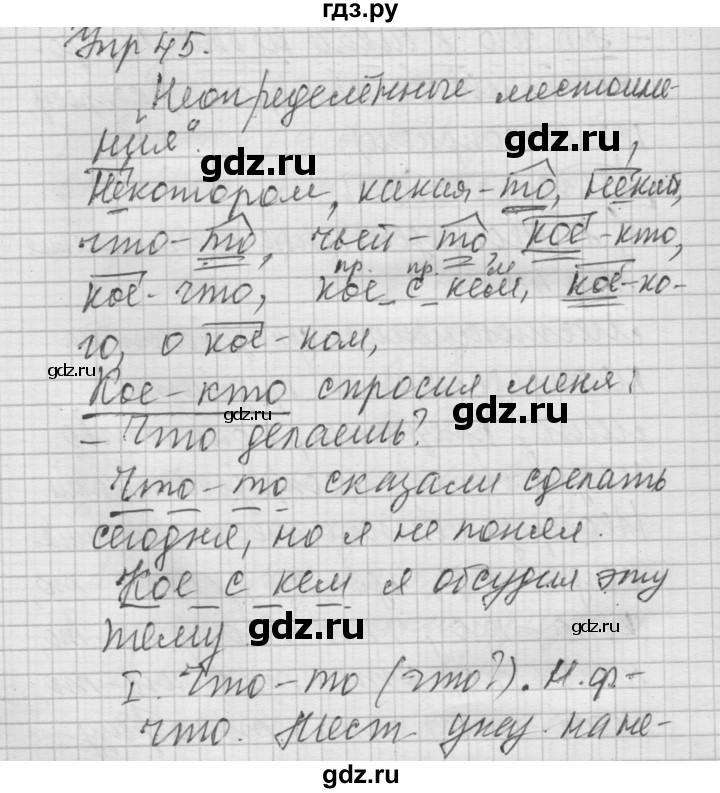 гдз.ру
Упр 45.
„Неопределённые местоиме-
ния“.
Некотором, какая-то, некий,
что-то, чьей-то, кое-кто,
пр. пр. м
кое-что, кое с кем, кое-ко-
го, о кое-ком,
Кое-кто спросил меня:
– Что делаешь?
Что-то сказали сделать
сегодня, но я не понял.
Кое с кем я обсудил эту
тему.
I. Что-то (что?). Н.ф-
что. Мест. указ. на не-
gdz.ru
gdz.ru
gdz.ru
gdz.ru
gdz.ru
gdz.ru
gdz.ru
gdz.ru
gdz.ru
gdz.ru
gdz.ru
gdz.ru